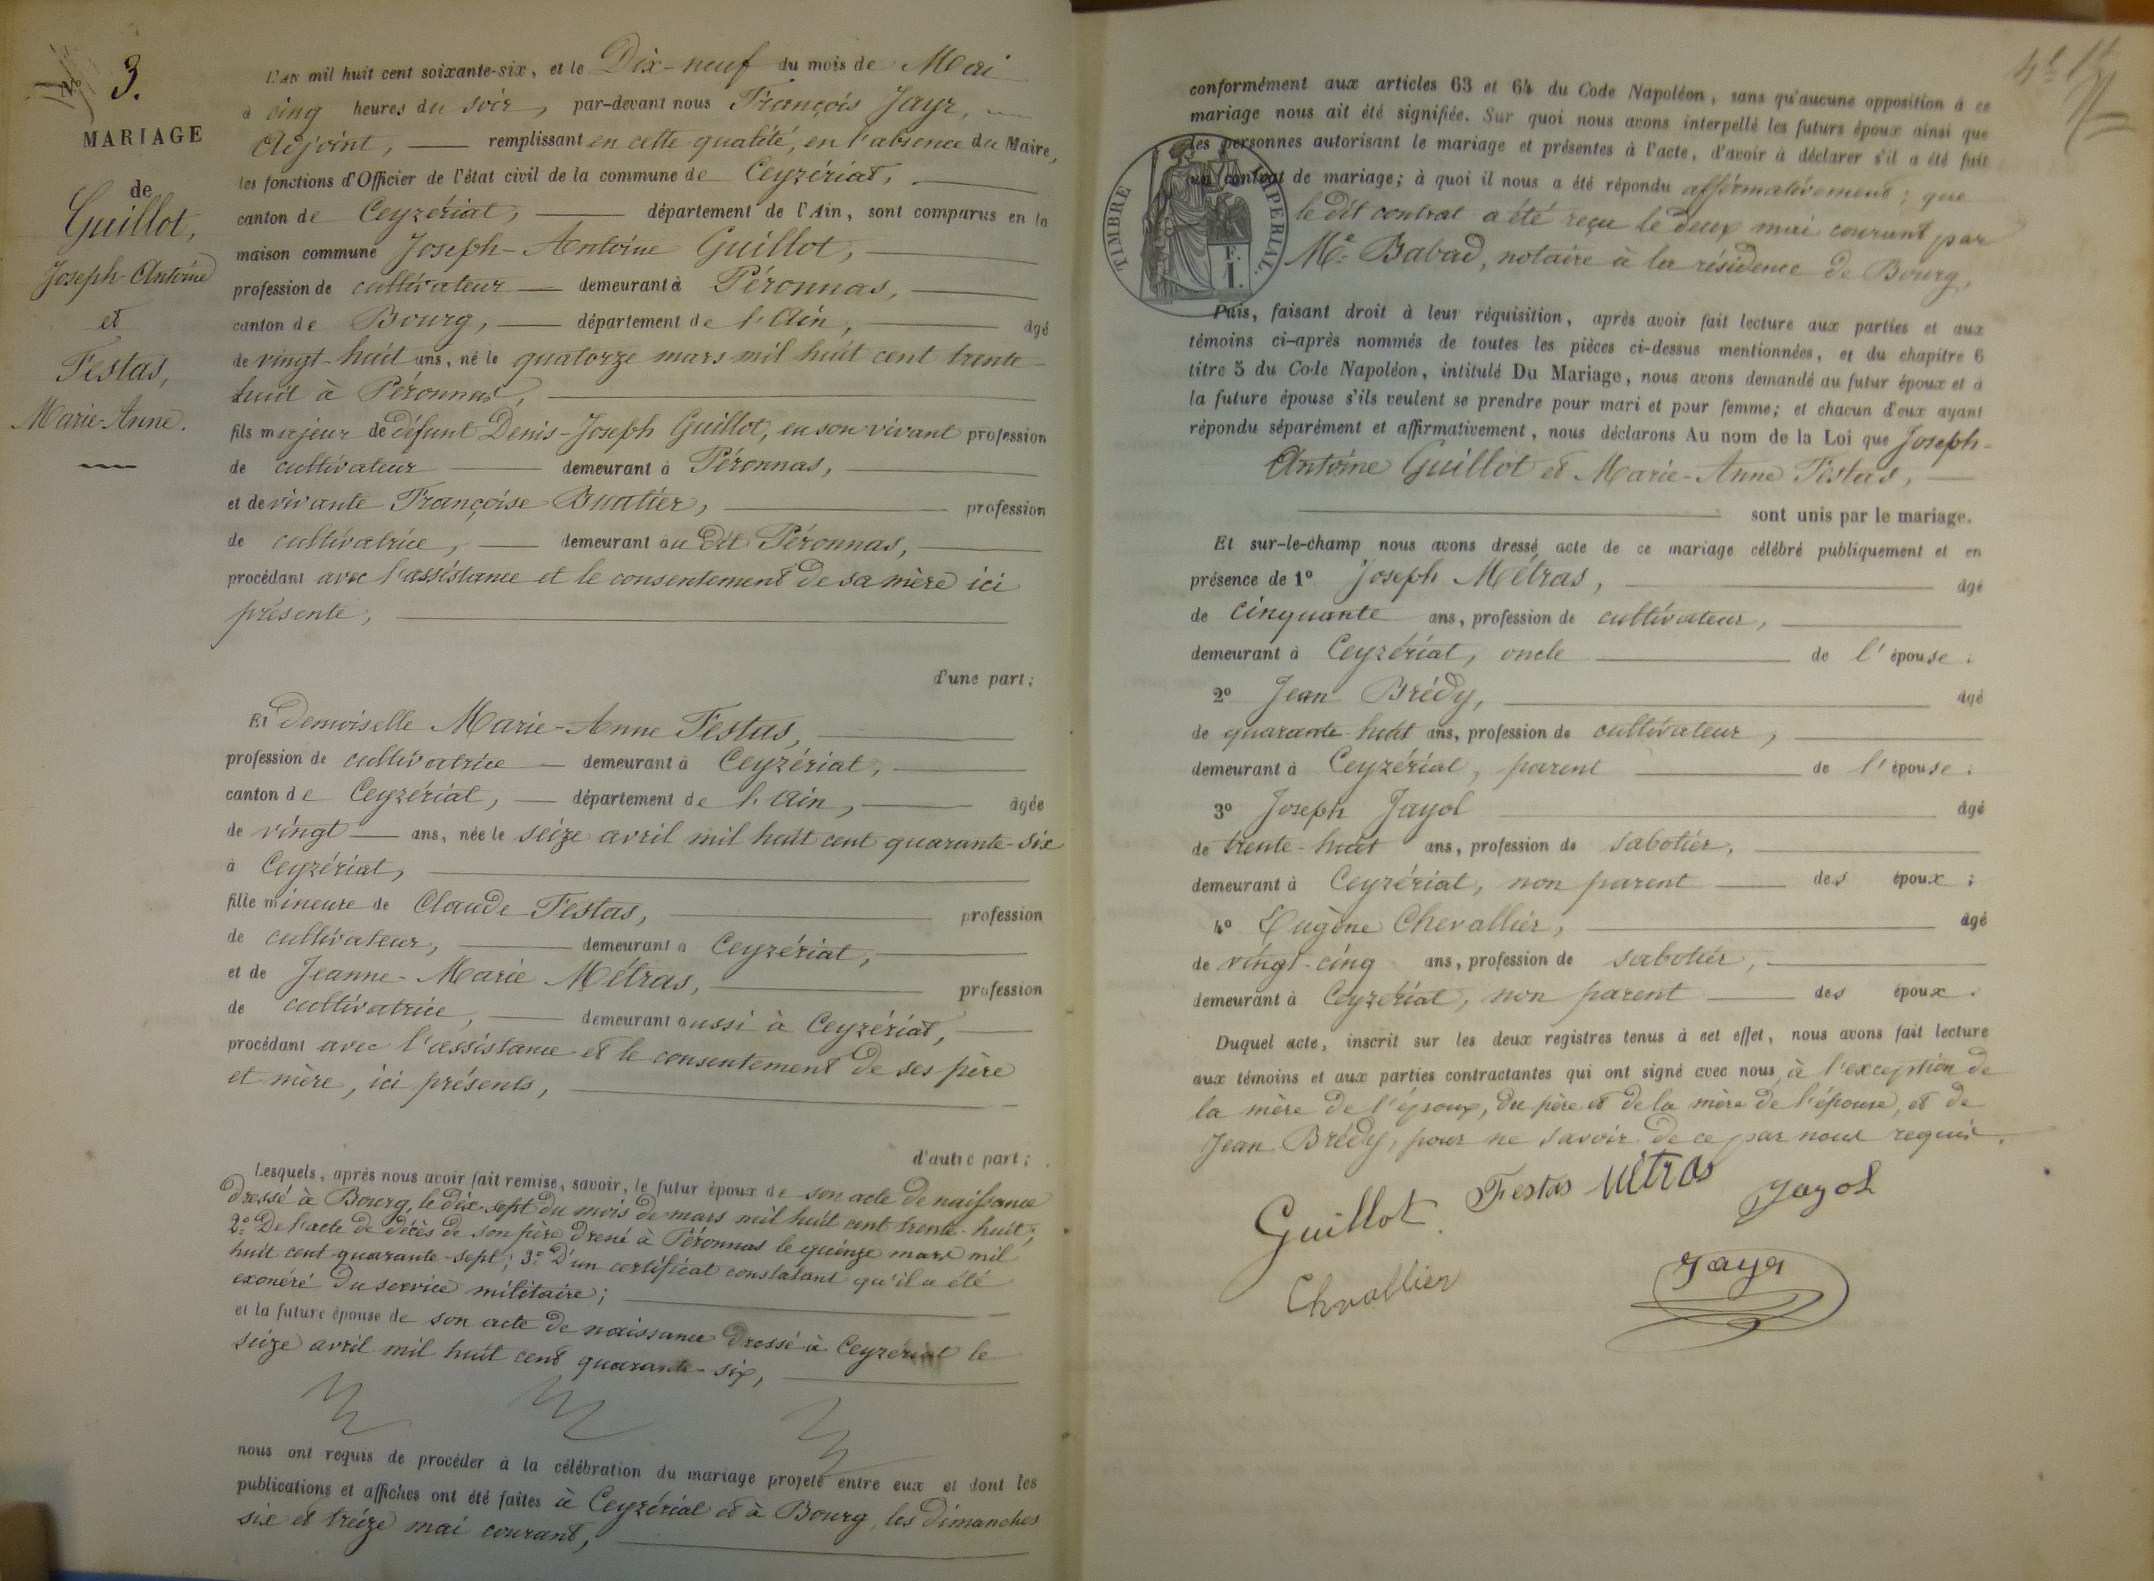 N° 3.
MARIAGE
de
Guillot,
Joseph-Antoine
et
Festas,
Marie-Anne.
L'An mil huit cent soixante-six, et le Dix-neuf du mois de Mai
à cinq heures du soir, par-devant nous François Jayr,
Adjoint, remplissant en cette qualité, en l'absence du Maire,
les fonctions d'Officier de l'état civil de la commune de Ceyzériat,
canton de Ceyzériat, département de l'Ain, sont comparus en la
maison commune Joseph-Antoine Guillot,
profession de cultivateur demeurant à Péronnas,
canton de Bourg, département de l'Ain, âgé
de vingt-huit ans, né le quatorze mars mil huit cent trente-
huit à Péronnas,
fils majeur de défunt Denis-Joseph Guillot, en son vivant profession
de cultivateur demeurant à Péronnas,
et de vivante Françoise Buatier, profession
de cultivatrice, demeurant au dit Péronnas,
procédant avec l'assistance et le consentement de sa mère ici
présente,
d'une part;
Et demoiselle Marie-Anne Festas,
profession de cultivatrice demeurant à Ceyzériat,
canton de Ceyzériat, département de l'Ain, âgée
de vingt ans, née le seize avril mil huit cent quarante-six
à Ceyzériat,
fille mineure de Claude Festas, profession
de cultivateur, demeurant à Ceyzériat,
et de Jeanne-Marie Métras, profession
de cultivatrice, demeurant aussi à Ceyzériat,
procédant avec l'assistance et le consentement de ses père
et mère, ici présents,
d'autre part;
Lesquels, après nous avoir fait remise, savoir, le futur époux de son acte de naissance
dressé à Bourg, le dix-sept du mois de mars mil huit cent trente-huit;
2° De l'acte de décès de son père dressé à Péronnas le quinze mars mil
huit cent quarante-sept; 3° D'un certificat constatant qu'il a été
exonéré du service militaire;
et la future épouse de son acte de naissance dressé à Ceyzériat le
seize avril mil huit cent quarante-six,
nous ont requis de procéder à la célébration du mariage projeté entre eux et dont les
publications et affiches ont été faites à Ceyzériat et à Bourg, les dimanches
six et treize mai courant,
conformément aux articles 63 et 64 du Code Napoléon, sans qu'aucune opposition à ce
mariage nous ait été signifiée. Sur quoi nous avons interpellé les futurs époux ainsi que
les personnes autorisant le mariage et présentes à l'acte, d'avoir à déclarer s'il a été fait
un contrat de mariage; à quoi il nous a été répondu affirmativement; que
le dit contrat a été reçu le deux mai courant par
Me Babad, notaire à la résidence de Bourg,
TIMBRE IMPERIAL.
F.
1.
Puis, faisant droit à leur réquisition, après avoir fait lecture aux parties et aux
témoins ci-après nommés de toutes les pièces ci-dessus mentionnées, et du chapitre 6
titre 5 du Code Napoléon, intitulé Du Mariage, nous avons demandé au futur époux et à
la future épouse s'ils veulent se prendre pour mari et pour femme; et chacun d'eux ayant
répondu séparément et affirmativement, nous déclarons Au nom de la Loi que Joseph-
Antoine Guillot et Marie-Anne Festas,
sont unis par le mariage.
Et sur-le-champ nous avons dressé acte de ce mariage célébré publiquement et en
présence de 1° Joseph Métras, âgé
de cinquante ans, profession de cultivateur,
demeurant à Ceyzériat, oncle de l'épouse;
2° Jean Brédy, âgé
de quarante-huit ans, profession de cultivateur,
demeurant à Ceyzériat, parent de l'épouse;
3° Joseph Jayol âgé
de trente-huit ans, profession de sabotier,
demeurant à Ceyzériat, non parent des époux;
4° Eugène Chevallier, âgé
de vingt-cinq ans, profession de sabotier,
demeurant à Ceyzériat, non parent des époux.
Duquel acte, inscrit sur les deux registres tenus à cet effet, nous avons fait lecture
aux témoins et aux parties contractantes qui ont signé avec nous, à l'exception de
la mère de l'époux, du père et de la mère de l'épouse, et de
Jean Brédy, pour ne savoir de ce par nous requis.
Guillot Festas Métras Jayol
Chvallier Jayr